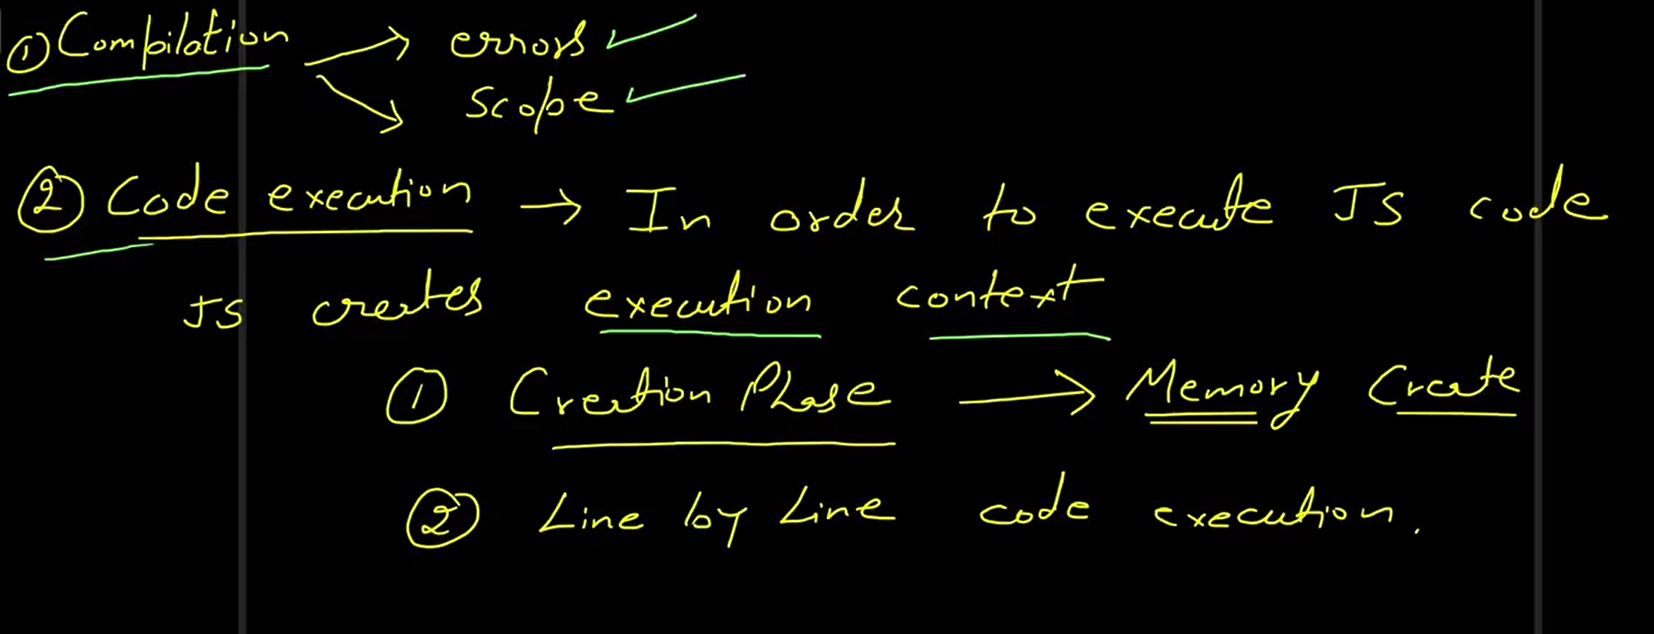 ① Compilation → errors ✓
→ Scope ✓
② Code execution → In order to execute JS code
JS creates execution context
① Creation Phase → Memory Create
② Line by Line code execution.